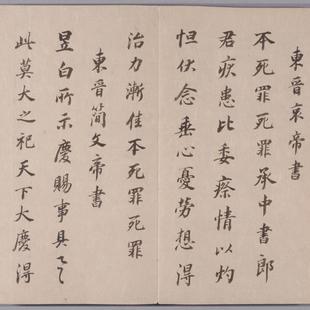 東晉哀帝書
不死罪死罪承中書郎
君疾患比委瘵情以灼
怛伏念垂心憂勞想得
治力漸佳不死罪死罪
東晉簡文帝書
昱白所示慶賜事具
此莫大之祀天下大慶得